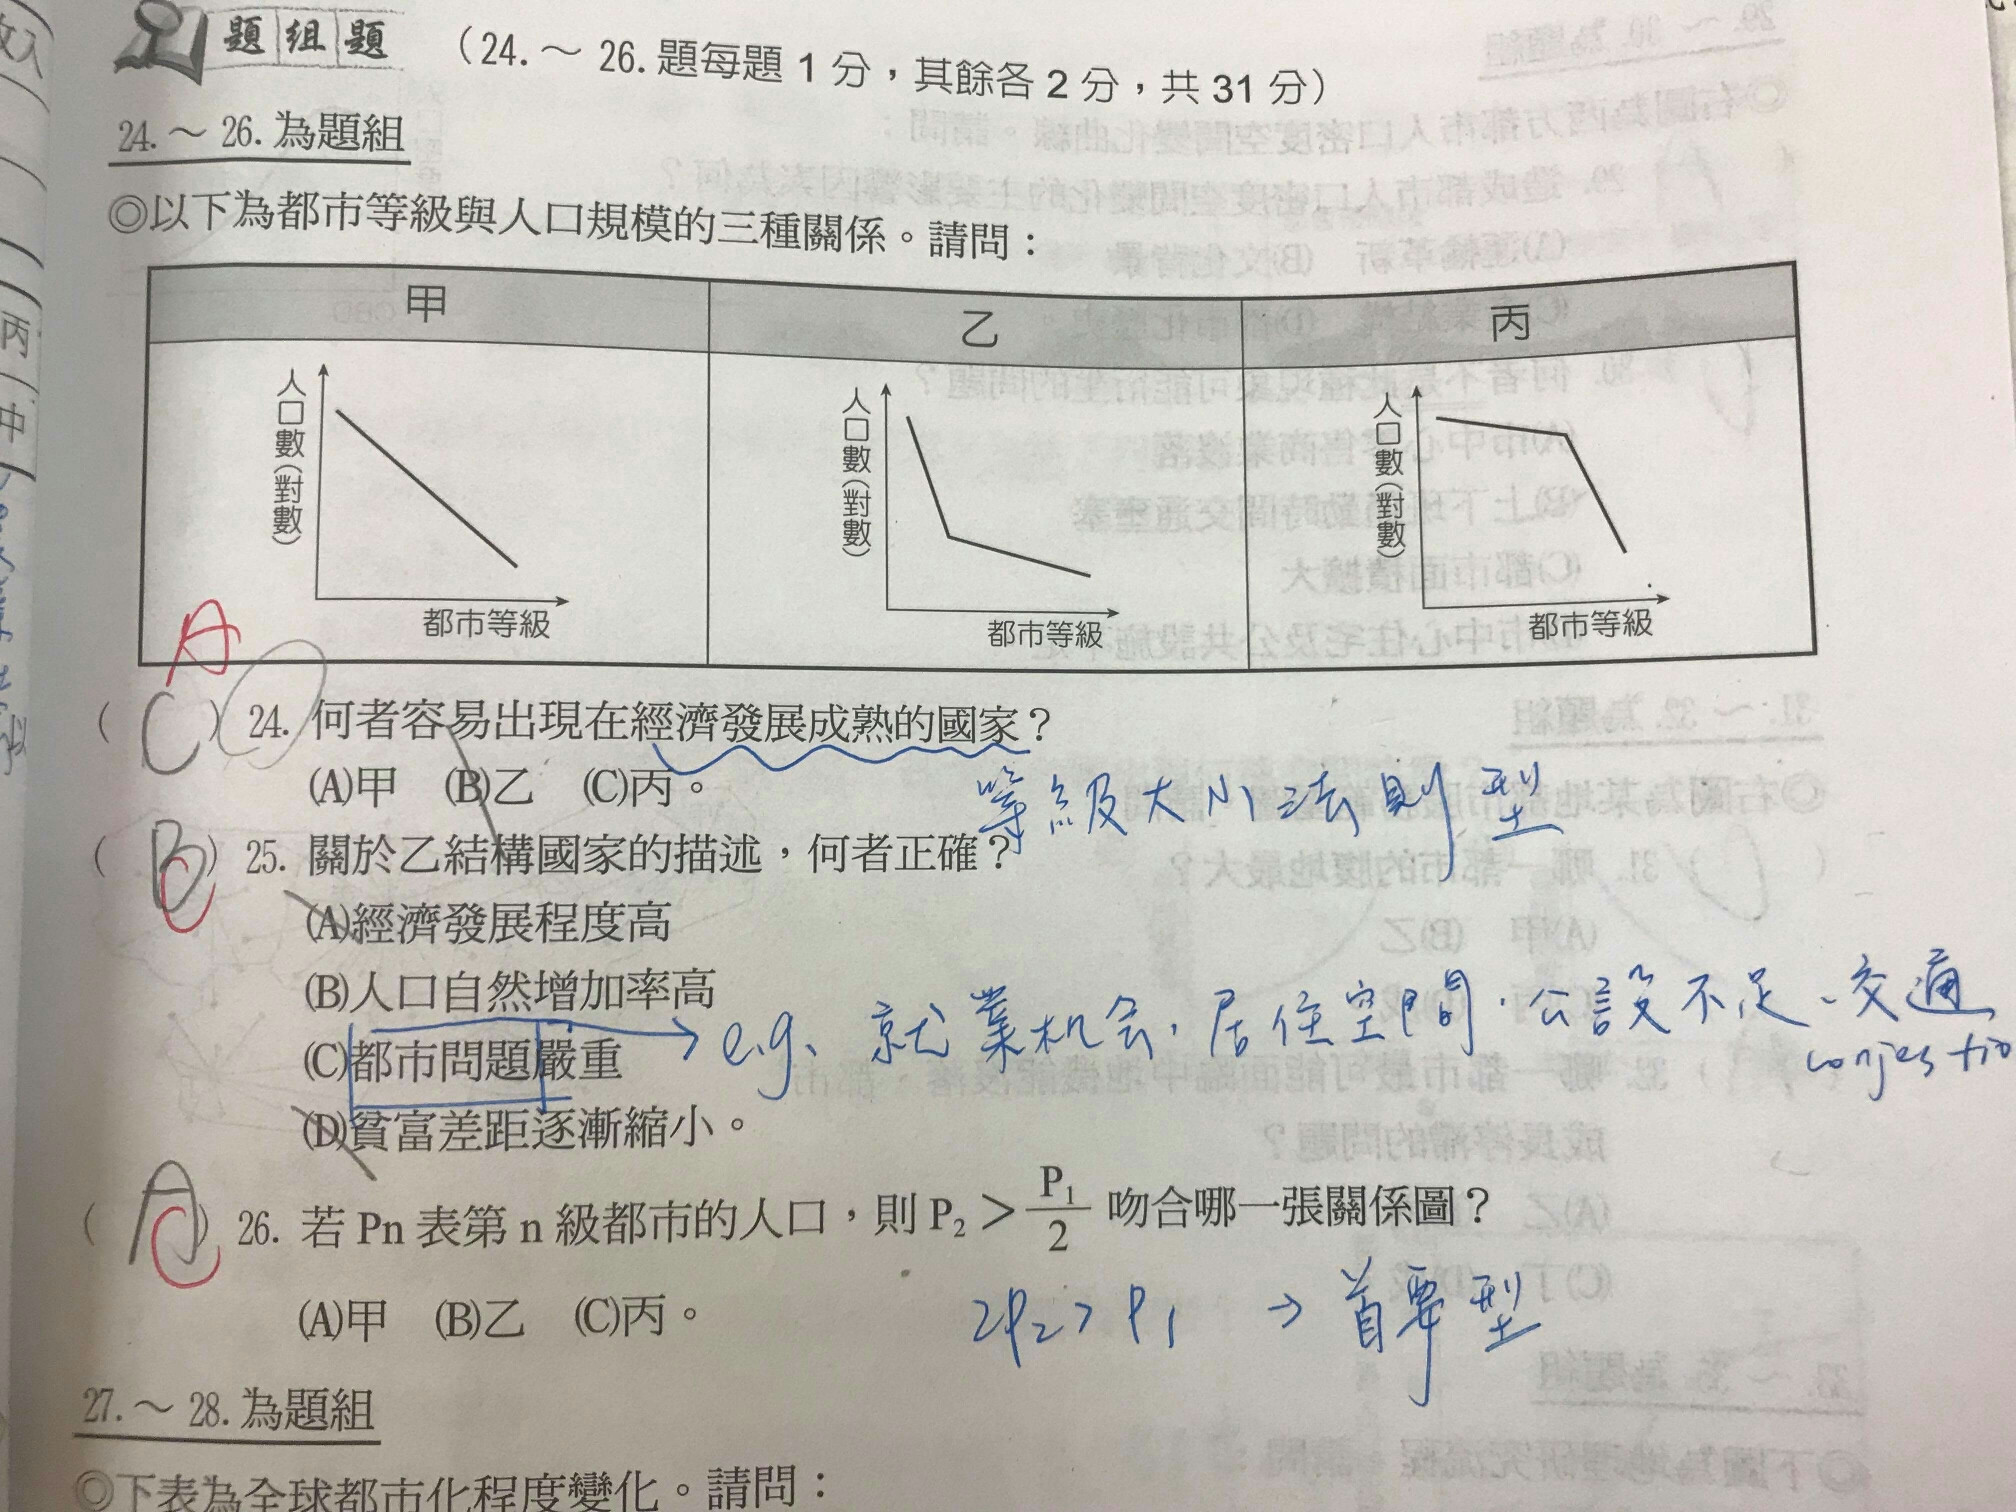 題組題 （24.～26.題每題1分，其餘各2分，共31分）
24.～26.為題組
◎以下為都市等級與人口規模的三種關係。請問：
甲 乙 丙
人口數(對數) 都市等級
人口數(對數) 都市等級
人口數(對數) 都市等級
A
( C ) 24. 何者容易出現在經濟發展成熟的國家？
(A)甲 (B)乙 (C)丙。
等級大小法則型
( B C ) 25. 關於乙結構國家的描述，何者正確？
(A)經濟發展程度高
(B)人口自然增加率高
(C)都市問題嚴重
e.g. 就業机会、居住空間、公設不足、交通
conjestio
(D)貧富差距逐漸縮小。
( A C ) 26. 若 Pn 表第 n 級都市的人口，則 P₂ ＞ P₁/2 吻合哪一張關係圖？
(A)甲 (B)乙 (C)丙。
2P₂ > P₁ → 首要型
27.～28.為題組
◎下表為全球都市化程度變化。請問：
丙
中